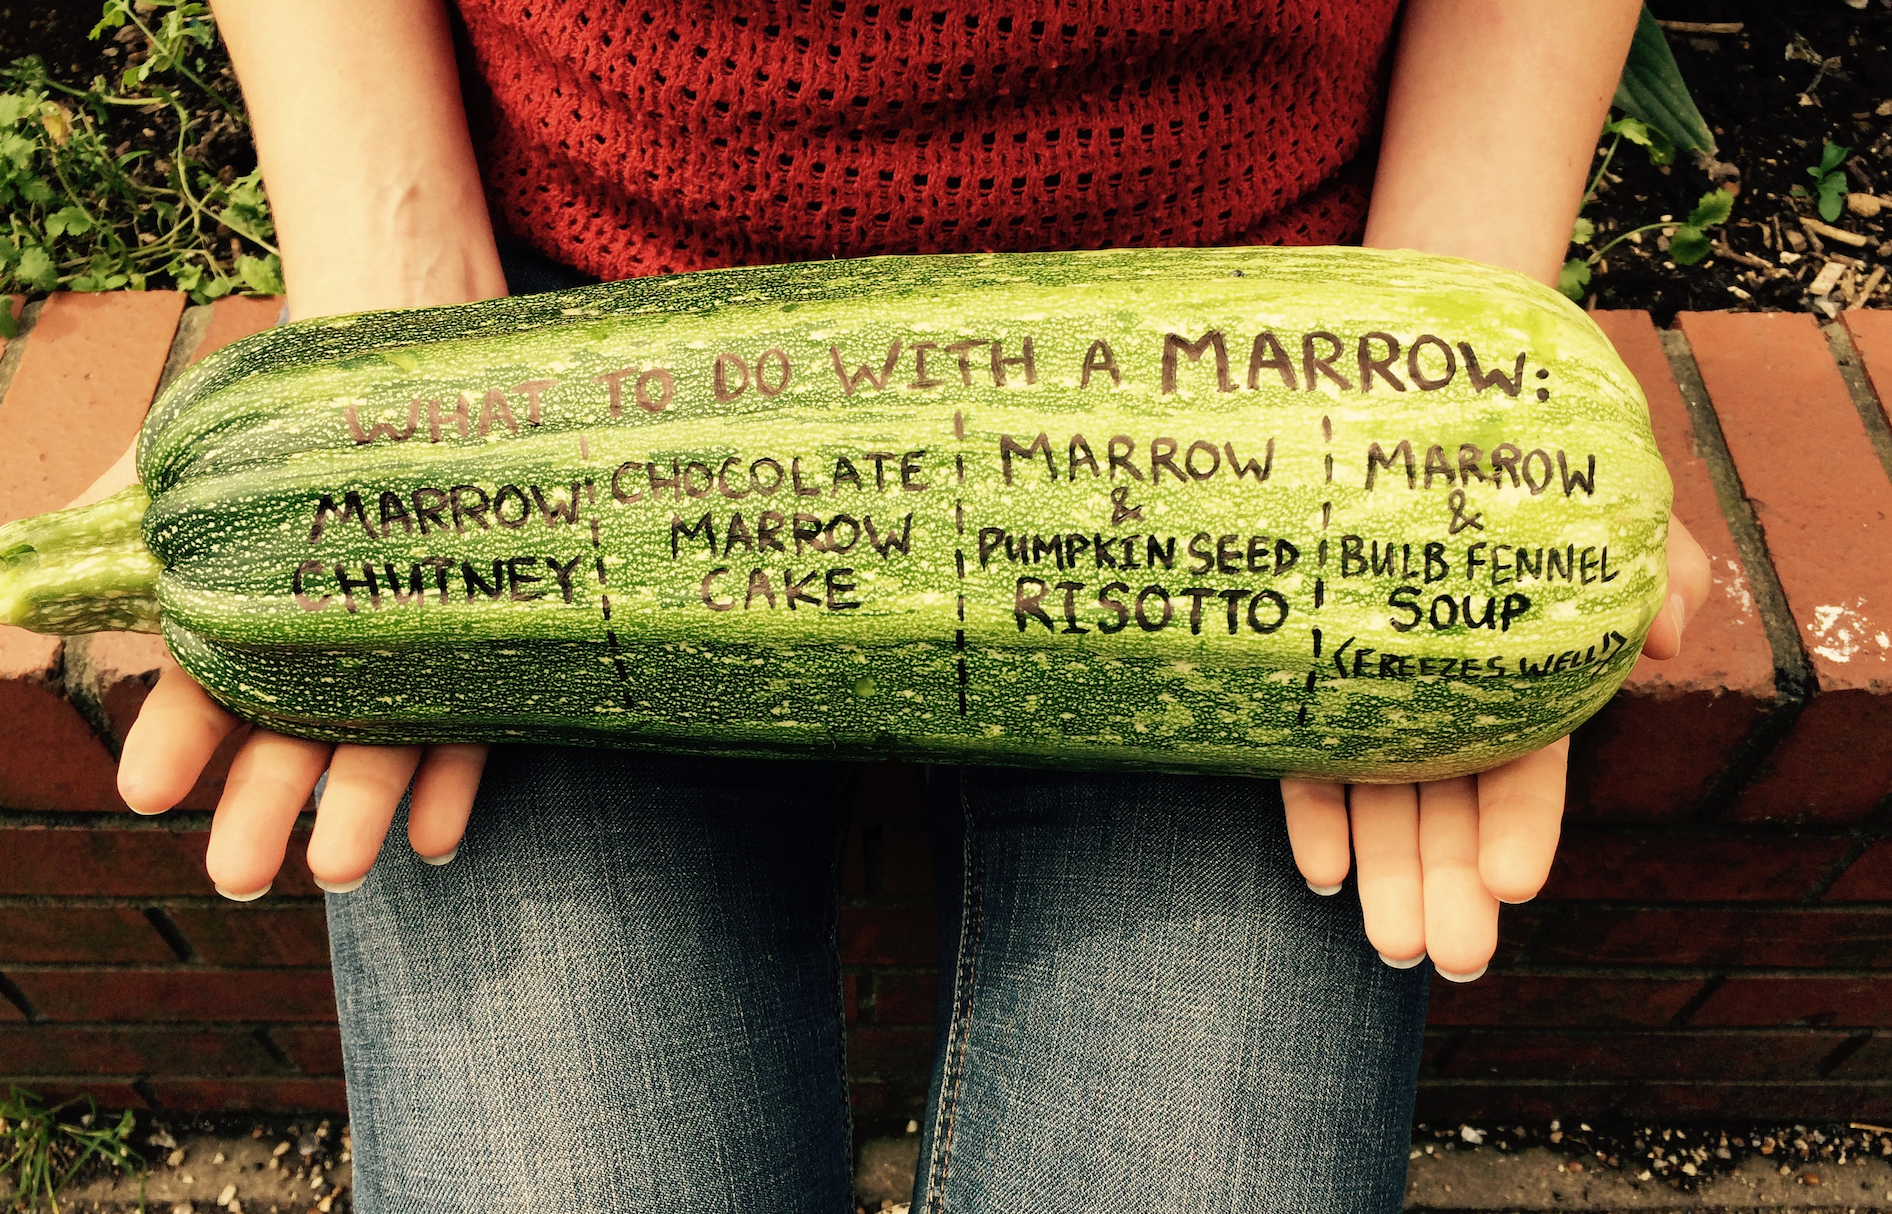 WHAT TO DO WITH A MARROW:
MARROW
CHUTNEY
CHOCOLATE
MARROW
CAKE
MARROW
&
PUMPKIN SEED
RISOTTO
MARROW
&
BULB FENNEL
SOUP
(FREEZES WELL!)